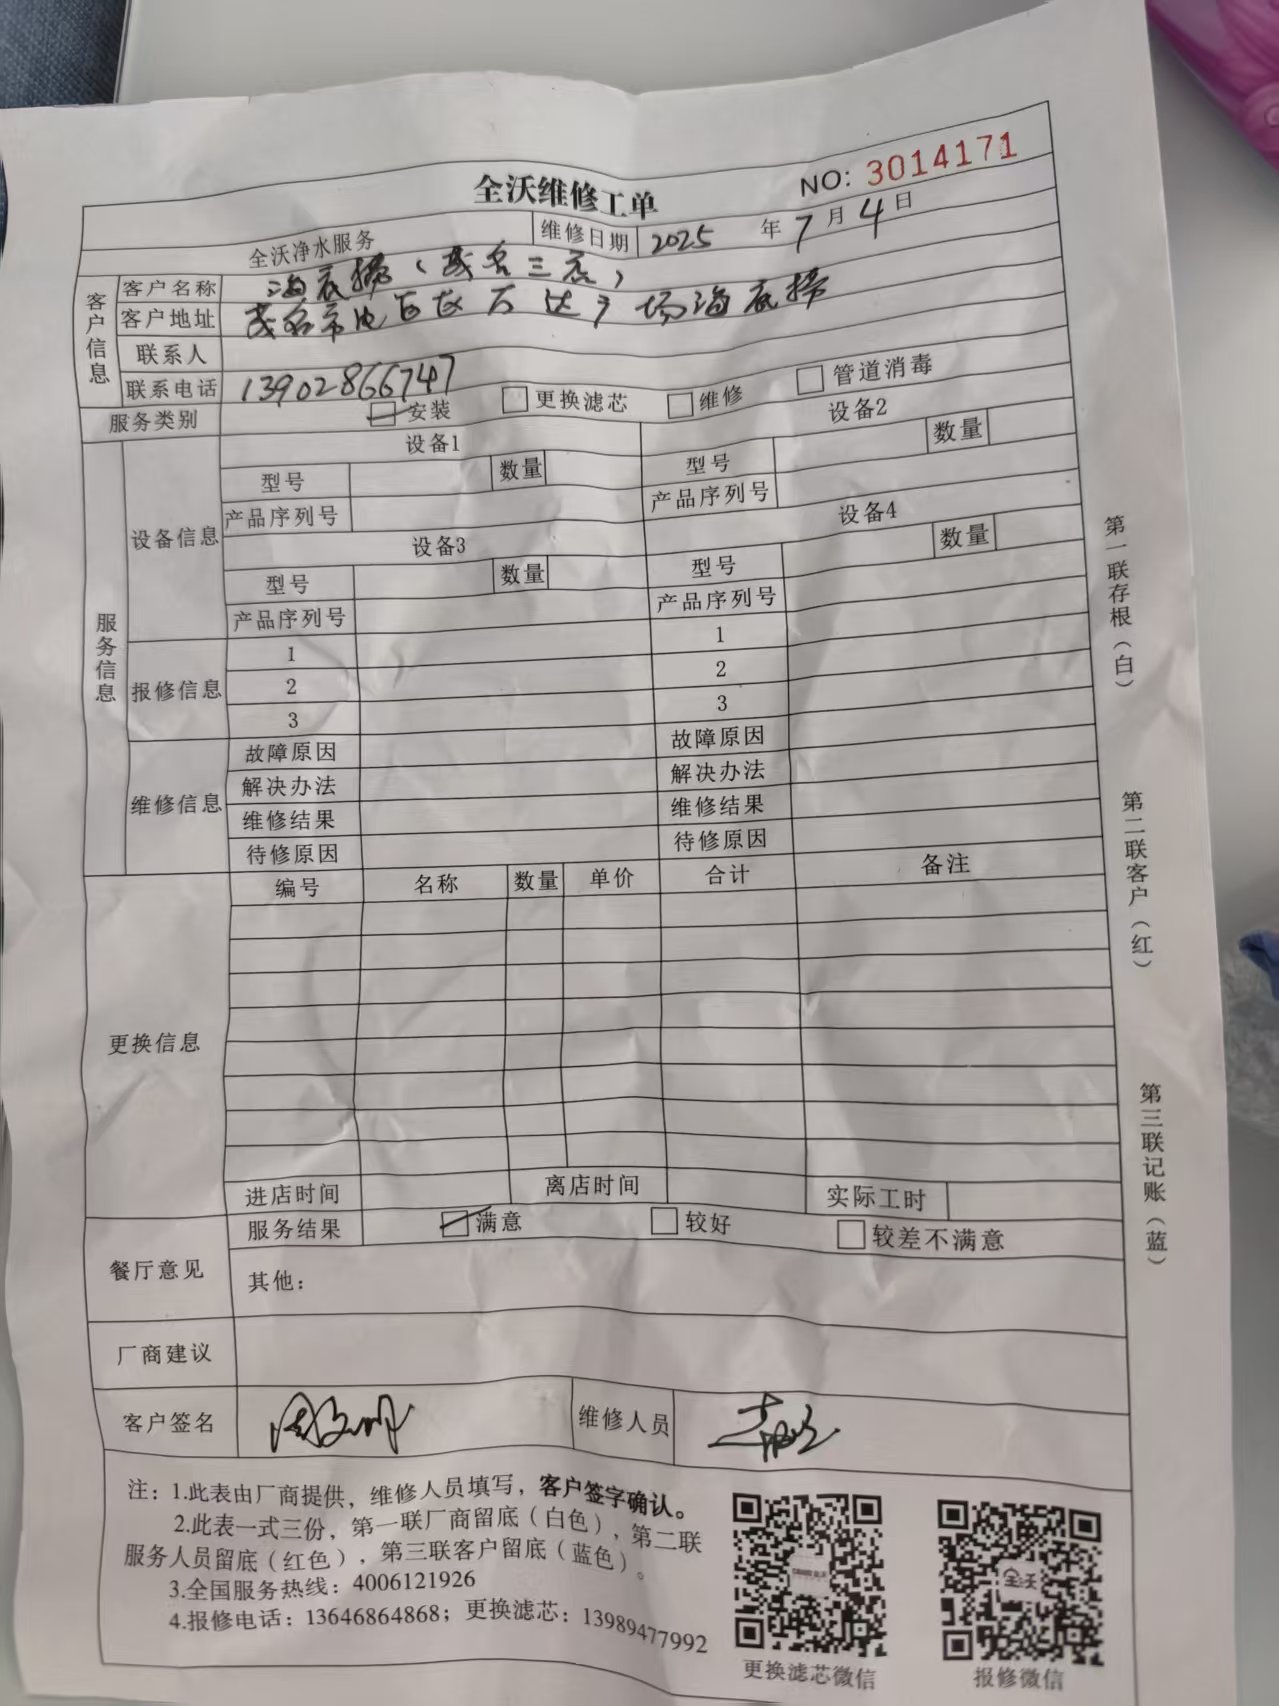 全沃维修工单
NO: 3014171
全沃净水服务 维修日期 2025 年 7 月 4 日
客户信息
客户名称 海底捞（茂名三店）
客户地址 茂名市电白区 万达广场海底捞
联系人
联系电话 13902866747
服务类别 安装 更换滤芯 维修 管道消毒
服务信息
设备信息
设备1 设备2
型号 数量 型号 数量
产品序列号 产品序列号
设备3 设备4
型号 数量 型号 数量
产品序列号 产品序列号
报修信息
1 1
2 2
3 3
维修信息
故障原因 故障原因
解决办法 解决办法
维修结果 维修结果
待修原因 待修原因
更换信息
编号 名称 数量 单价 合计 备注
进店时间 离店时间 实际工时
餐厅意见
服务结果 满意 较好 较差不满意
其他：
厂商建议
客户签名 维修人员
注：1.此表由厂商提供，维修人员填写，客户签字确认。
2.此表一式三份，第一联厂商留底（白色），第二联
服务人员留底（红色），第三联客户留底（蓝色）。
3.全国服务热线：4006121926
4.报修电话：13646864868；更换滤芯：13989477992
全沃
更换滤芯微信 报修微信
第一联存根（白）
第二联客户（红）
第三联记账（蓝）